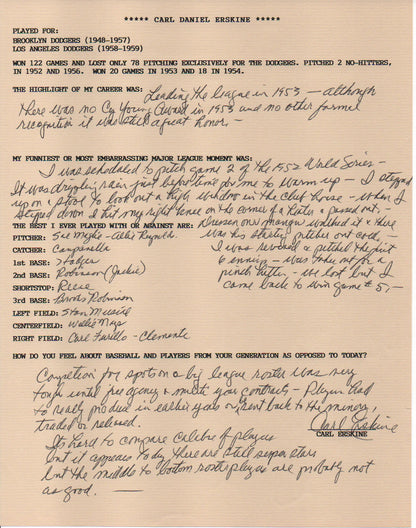 ***** CARL DANIEL ERSKINE *****
PLAYED FOR:
BROOKLYN DODGERS (1948-1957)
LOS ANGELES DODGERS (1958-1959)
WON 122 GAMES AND LOST ONLY 78 PITCHING EXCLUSIVELY FOR THE DODGERS. PITCHED 2 NO-HITTERS,
IN 1952 AND 1956. WON 20 GAMES IN 1953 AND 18 IN 1954.
THE HIGHLIGHT OF MY CAREER WAS: Leading the league in 1953 - although
there was no Cy Young Award in 1953 and no other formal
recognition it was still a great honor -
MY FUNNIEST OR MOST EMBARRASSING MAJOR LEAGUE MOMENT WAS:
I was scheduled to pitch game 2 of the 1952 World Series -
It was drizzling rain just before time for me to warm up - I stepped
up on a stool to look out a high window in the club house - when I
stepped down I hit my right knee on the corner of a heater & passed out.
THE BEST I EVER PLAYED WITH OR AGAINST ARE: Dressen our manager watched it & there
PITCHER: Sal Maglie - Allie Reynolds was his starting pitcher out cold -
CATCHER: Campanella I was revived & pitched the first
1st BASE: Hodges 6 innings - was taken out for a
2nd BASE: Robinson (Jackie) pinch hitter - we lost but I
SHORTSTOP: Reese came back to win game #5 -
3rd BASE: Brooks Robinson
LEFT FIELD: Stan Musial
CENTERFIELD: Willie Mays
RIGHT FIELD: Carl Furillo - Clemente
HOW DO YOU FEEL ABOUT BASEBALL AND PLAYERS FROM YOUR GENERATION AS OPPOSED TO TODAY?
Competion for spots on a big league roster was very
tough until free agency & multi year contracts - Players had
to really produce in earlier years or sent back to the minors,
traded or released. Carl Erskine
CARL ERSKINE
Its hard to compare calibre of players
but it appears today there are still super stars
but the middle to bottom roster players are probably not
as good. -